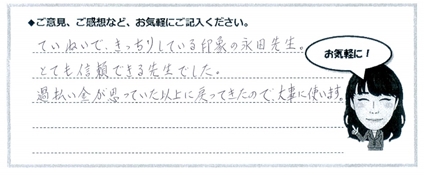 ◆ご意見、ご感想など、お気軽にご記入ください。
ていねいで、きっちりしている印象の永田先生。
とても信頼できる先生でした。
過払い金が思っていた以上に戻ってきたので、大事に使います。
お気軽に!